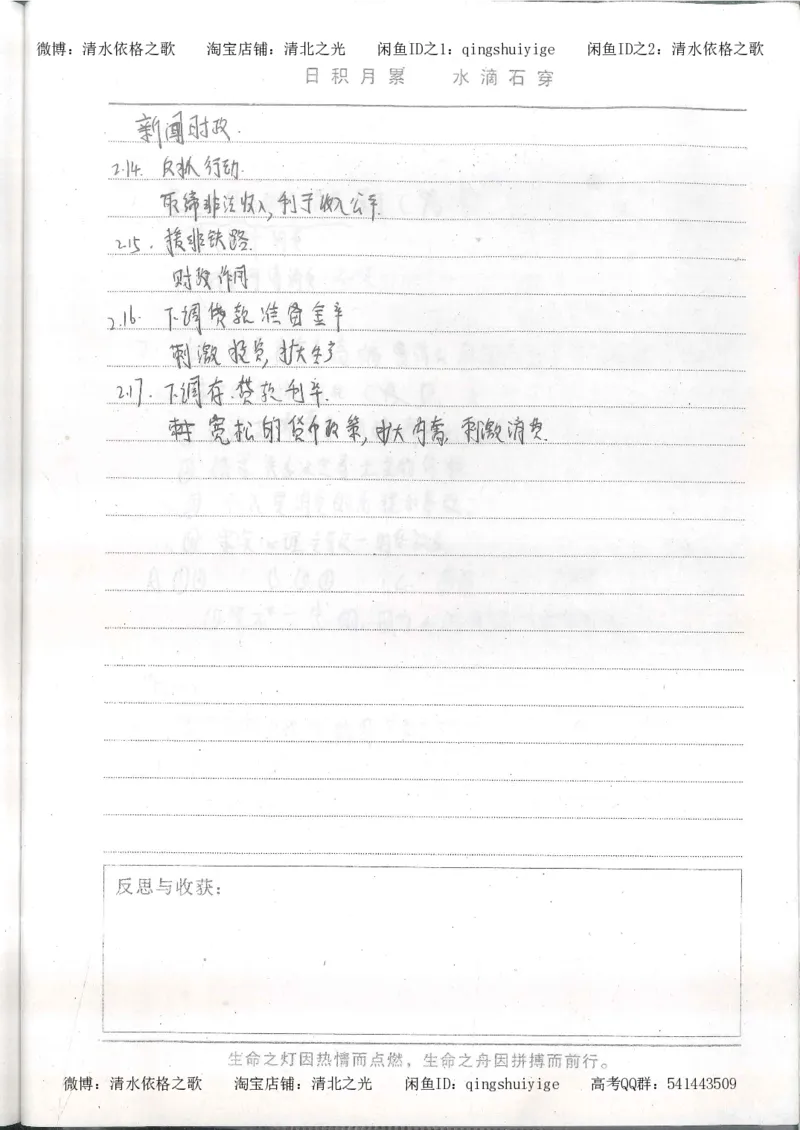 微博：清水依格之歌 淘宝店铺：清北之光 闲鱼ID之1：qingshuiyige 闲鱼ID之2：清水依格之歌
日积月累 水滴石穿
新闻时政.
2.14. 反抓行动.
取缔非法收入,利于收入公平.
2.15. 援非铁路.
财政作用
2.16. 下调贷款准备金率
刺激投资,扩大生产
2.17. 下调存.贷款利率.
宽松的货币政策,扩大内需,刺激消费.
反思与收获：
生命之灯因热情而点燃，生命之舟因拼搏而前行。
微博：清水依格之歌 淘宝店铺：清北之光 闲鱼ID：qingshuiyige 高考QQ群：541443509